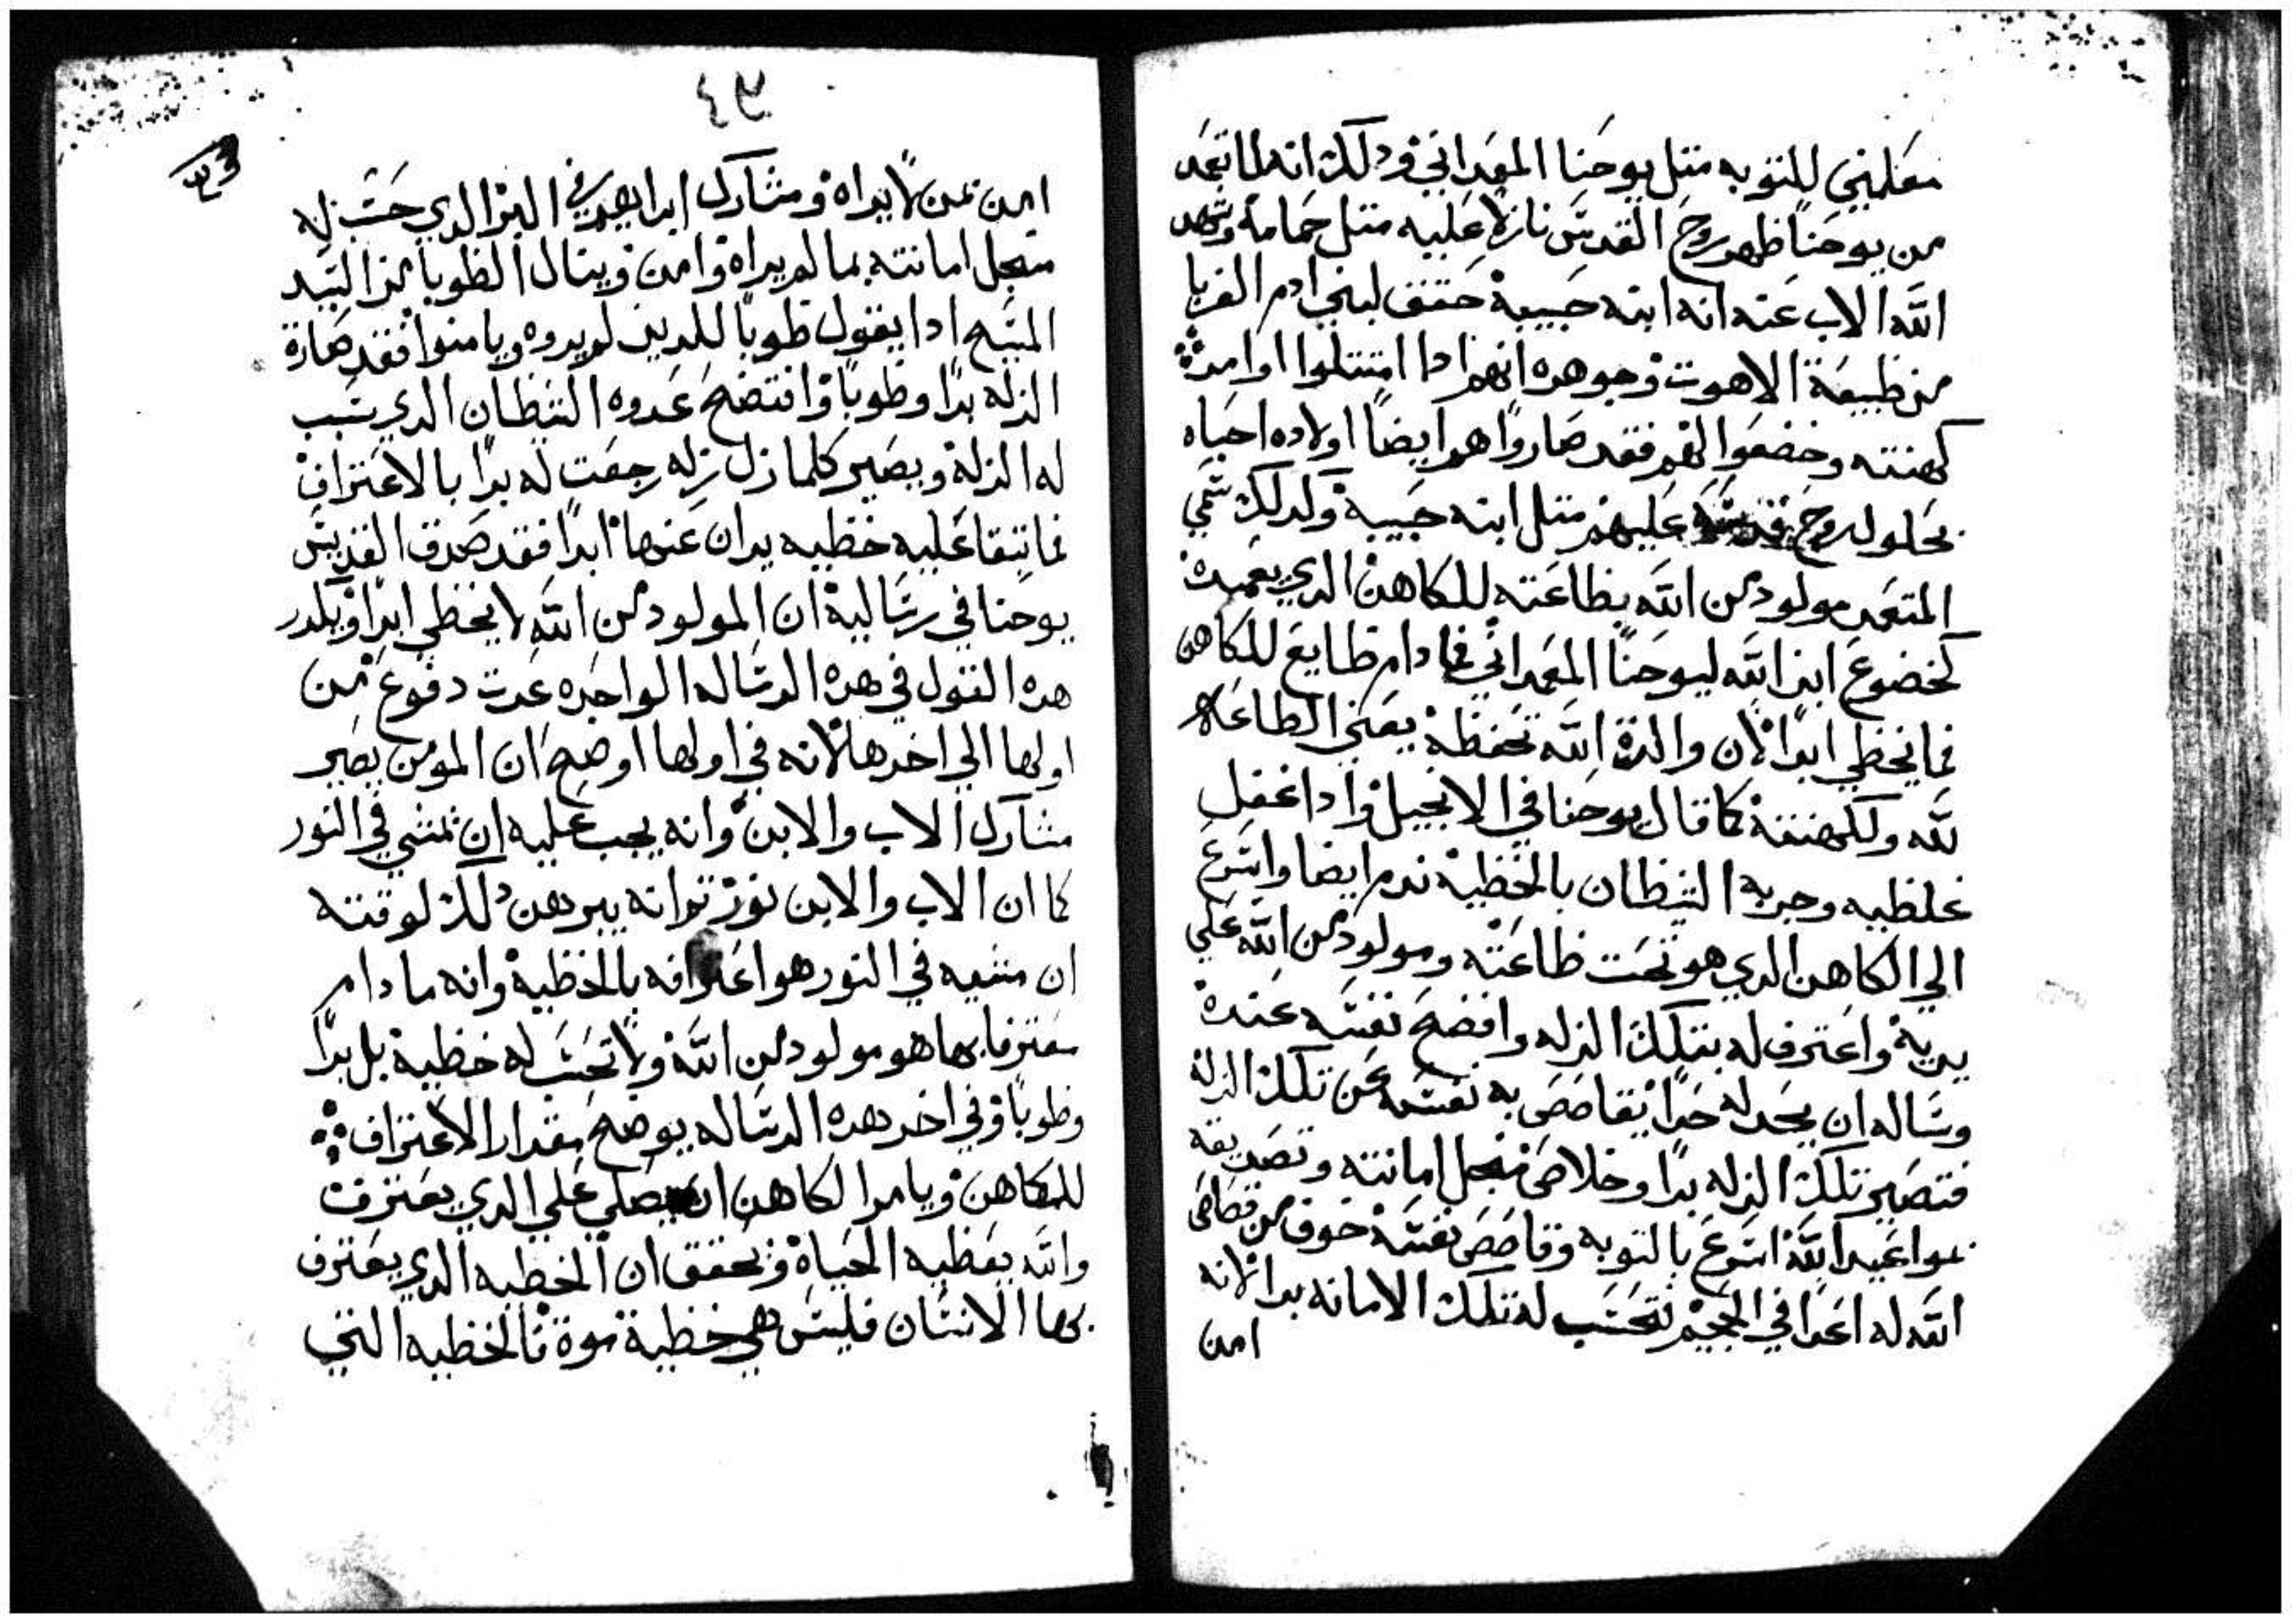 معلمين للتوبه متل يوحنا المعمداني ودلك انه لما تعمد
من يوحنا ظهر روح القدس نازلاً عليه متل حمامة وشهد
الله الاب عنه انه ابنه حبيبه حتف لبني ادم الغربا
من طبيعة الاهوت وجوهره انهم ادا امتتلوا اوامره
كهنته وخضعوا لهم فقد صاروا هم ايضاً اولاده احباه
بحلول روح قدسه عليهم متل ابنه حبيبه ولدلك سمي
المتعمد مولود من الله بطاعته للكاهن الدي يعمده
كخضوع ابن الله ليوحنا المعمداني فما دام طايع للكاهن
فما يخطي ابدا لان والدة الله تحفظه يعني الطاعه
لله ولكهنته كما قال يوحنا في الانجيل وادا غفل
غلطيه وجربه الشيطان بالخطية ندم ايضا واسرع
الي الكاهن الدي هو تحت طاعته ومولود من الله علي
يديه واعترف له بتلك الزله وافضح نفسه عنده
وساله ان يحد له حداً يقاصص به نفسه عن تلك الزلة
فتصير تلك الزله براً وخلاص منجل امانته وتصديقه
بمواعيد الله اسرع بالتوبه وقاصص نفسه خوف من قصاص
الله له اغدا في الجحيم تحسب له تلك الامانه برا لانه
امن
٤٣
امن بمن لا يراه وشارك ابراهيم في البر الدي حسب له
منجل امانته بما لم يراه وامن وينال الطوبا من السيد
المسيح ادا يقول طوبا للدين لم يروه ويامنوا فقد صارة
الزله براً وطوباً وافتضح عدوه الشيطان الدي سبب
له الزلة ويصير كلما زل زله رجعت له براً بالاعتراف
فما تبقا عليه خطيه يدان عنها ابداً فقد صدق القديس
يوحنا في رساليه ان المولود من الله لا يخطي ابداً ويكرر
هده القول في هده الرساله الواحده عدت دفوع من
اولها الي اخرها لانه في اولها اوضح ان المومن يصير
مشارك الاب والابن وانه يجب عليه ان يمشي في النور
كما ان الاب والابن نور تم انه يبرهن دلك لوقته
ان مشيه في النور هو اعترافه بالخطية وانه ما دام
معترفا بها هو مولود من الله ولا تحسب له خطية بل براً
وطوباً وفي اخر هده الرساله يوضح مقدار الاعتراف
للكاهن ويامر الكاهن ان يصلي علي الدي يعترف
والله يعطيه الحياة وتحقق ان الخطيه الدي يعترف
بها الانسان فليس هي خطية موة فالخطيه التي